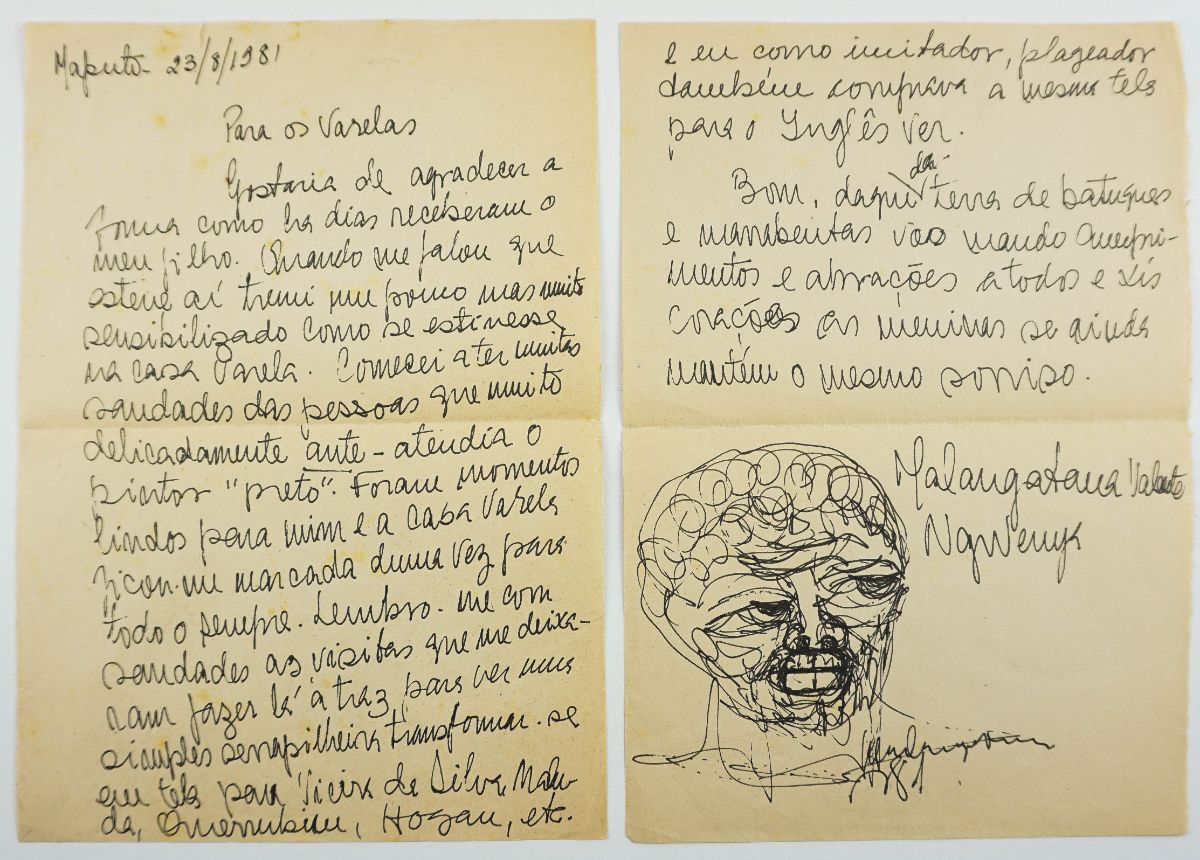 Maputo 23/8/1981
Para os Varelas
Gostaria de agradecer a
forma como ha dias receberam o
meu filho. Quando me falou que
esteve aí tremi um pouco mas muito
sensibilizado como se estivesse
na casa Varela. Comecei a ter muitas
saudades das pessoas que muito
delicadamente ante-atendia o
pintor "preto". Foram momentos
lindos para mim e a casa Varela
ficou-me marcada duma vez para
todo o sempre. Lembro-me com
saudades as visitas que me deixa-
ram fazer lá a traz para ver uma
simples serrapilheira transformar-se
em tela para Vieira da Silva, Malu-
da, Cherubim, Hogan, etc.
e eu como imitador, plageador
também comprava a mesma tela
para o Inglês ver.
Bom, daqui da terra de batuques
e marrabentas vão mando Cumpri-
mentos e abrações a todos e xis
corações as meninas se ainda
mantém o mesmo sorriso.
Malangatana Valente
Ngwenya